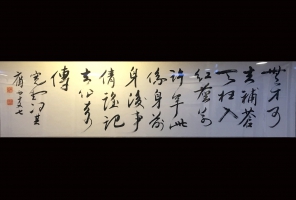 無才可
去補蒼
天枉入
紅塵若
許年此
係身前
身後事
倩誰記
去作奇
傳